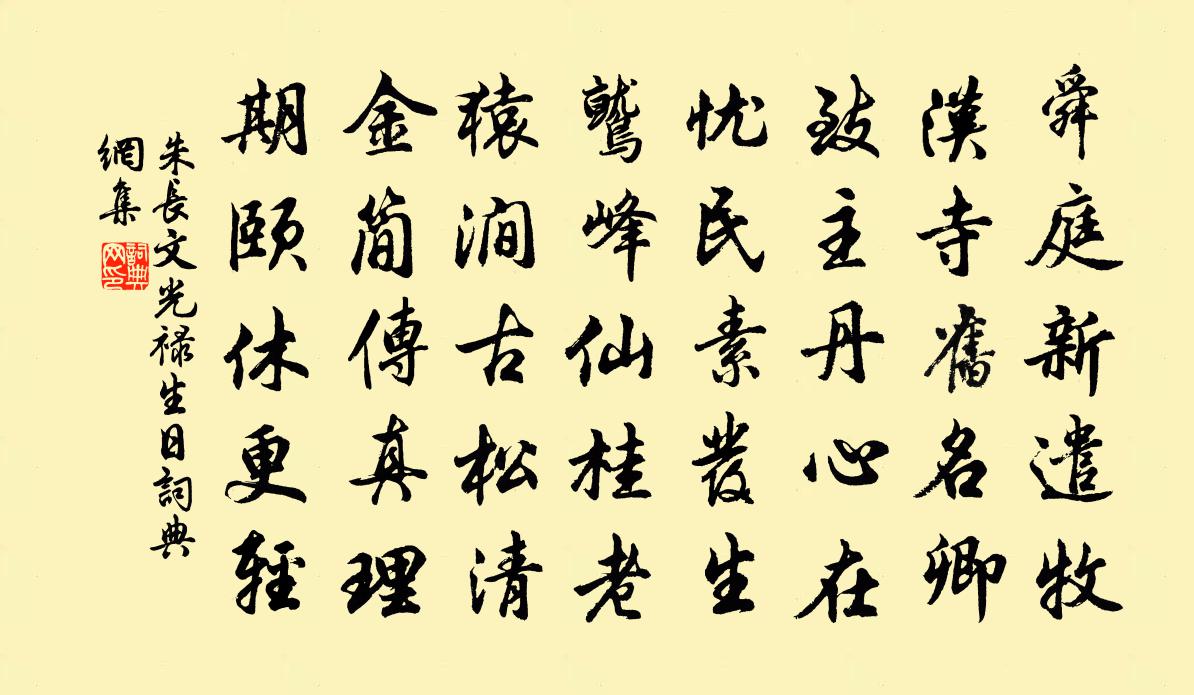 舜庭新遣牧
漢寺舊名卿
致主丹心在
忧民素髮生
鷲峰仙桂老
猿澗古松清
金简傳真理
期頤休更輕
朱長文光禄生日詞典
網集
詞典
网印